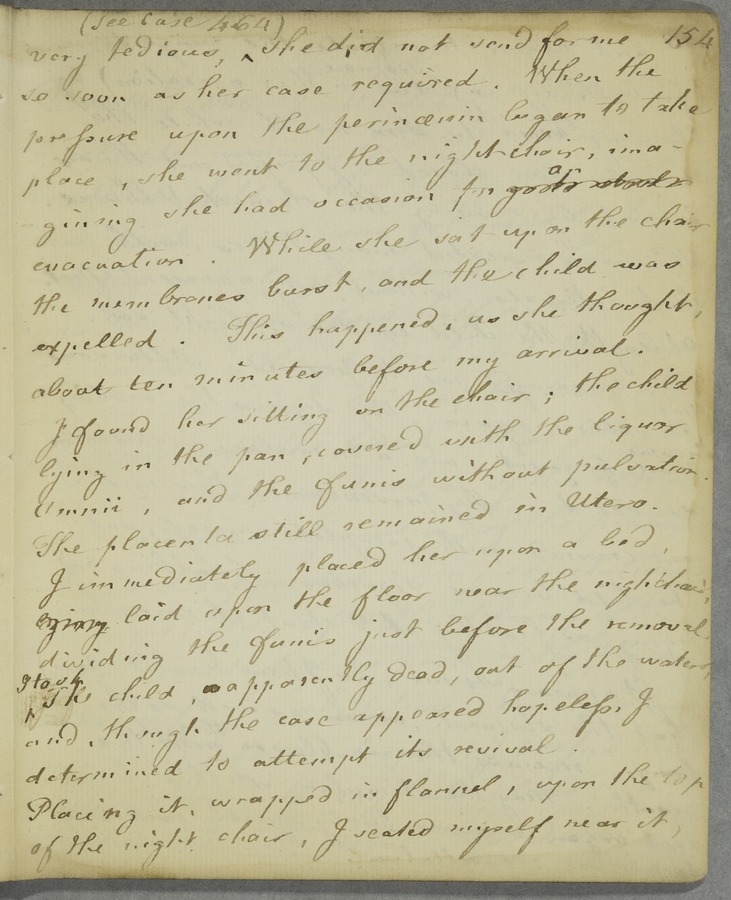 (See Case 464) 154
very tedious, ^ she did not send for me
so soon as her case required. When the
pressure upon the perinœum began to take
place, she went to the night-chair, ima-
-gining she had occasion for an
evacuation. While she sat upon the chair
the membranes burst, and the child was
expelled. This happened, as she thought,
about ten minutes before my arrival.
I found her sitting on the chair; the child
lying in the pan, covered with the liquor
Amnii, and the funis without pulsation.
The placenta still remained in Utero.
I immediately placed her upon a bed,
laid upon the floor near the nightchair,
dividing the funis just before the removal.
I took
^ The child, apparently dead, out of the waters,
and, though the case appeared hopeless, I
determined to attempt its revival.
Placing it, wrapped in flannel, upon the top
of the night chair, I seated myself near it,